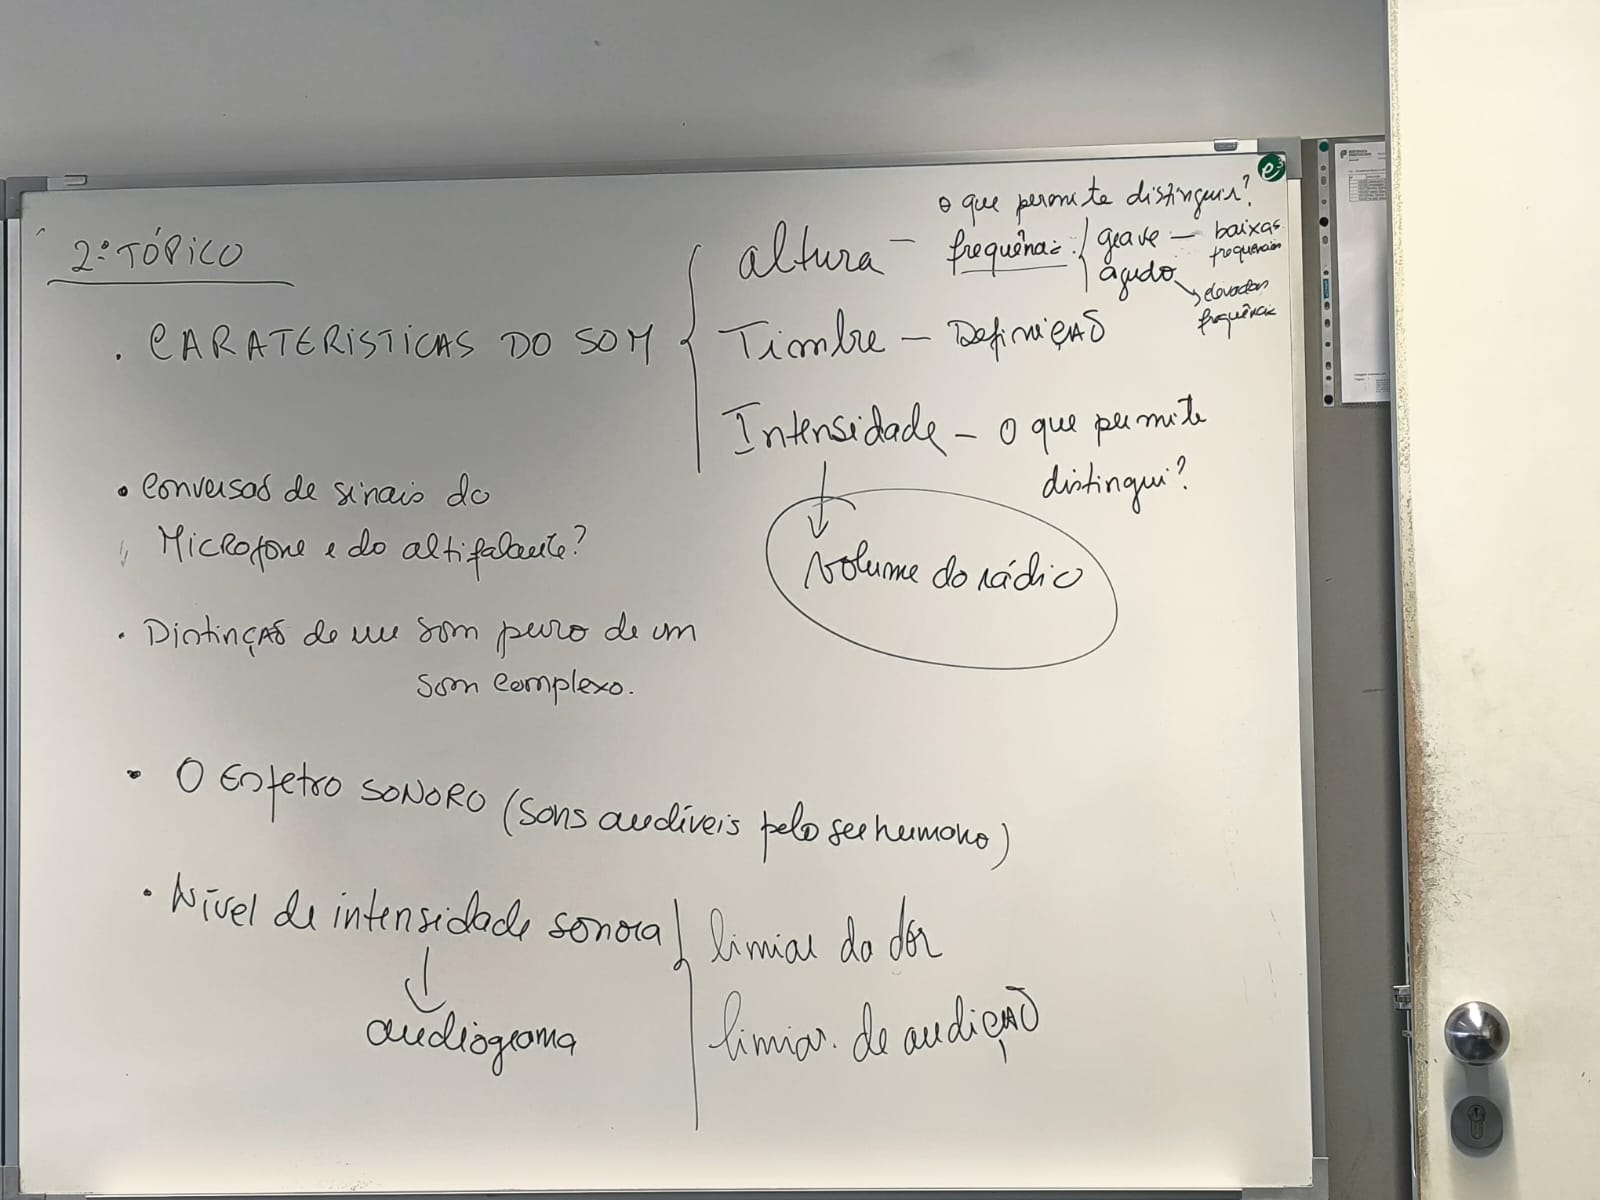 2.º TÓPICO
. CARATERISTICAS DO SOM
o que permite distinguir?
altura - frequência: grave - baixas frequencias
agudo → elevadas frequência
Timbre - Definição
Intensidade - O que permite distingui?
Volume do rádio
• Conversão de sinais do
Microfone e do altifalante?
. Distinção de um som puro de um
som complexo.
• O Espetro SONORO (sons audíveis pelo ser humano)
• Nível de intensidade sonora
limiar da dor
limiar de audição
audiograma